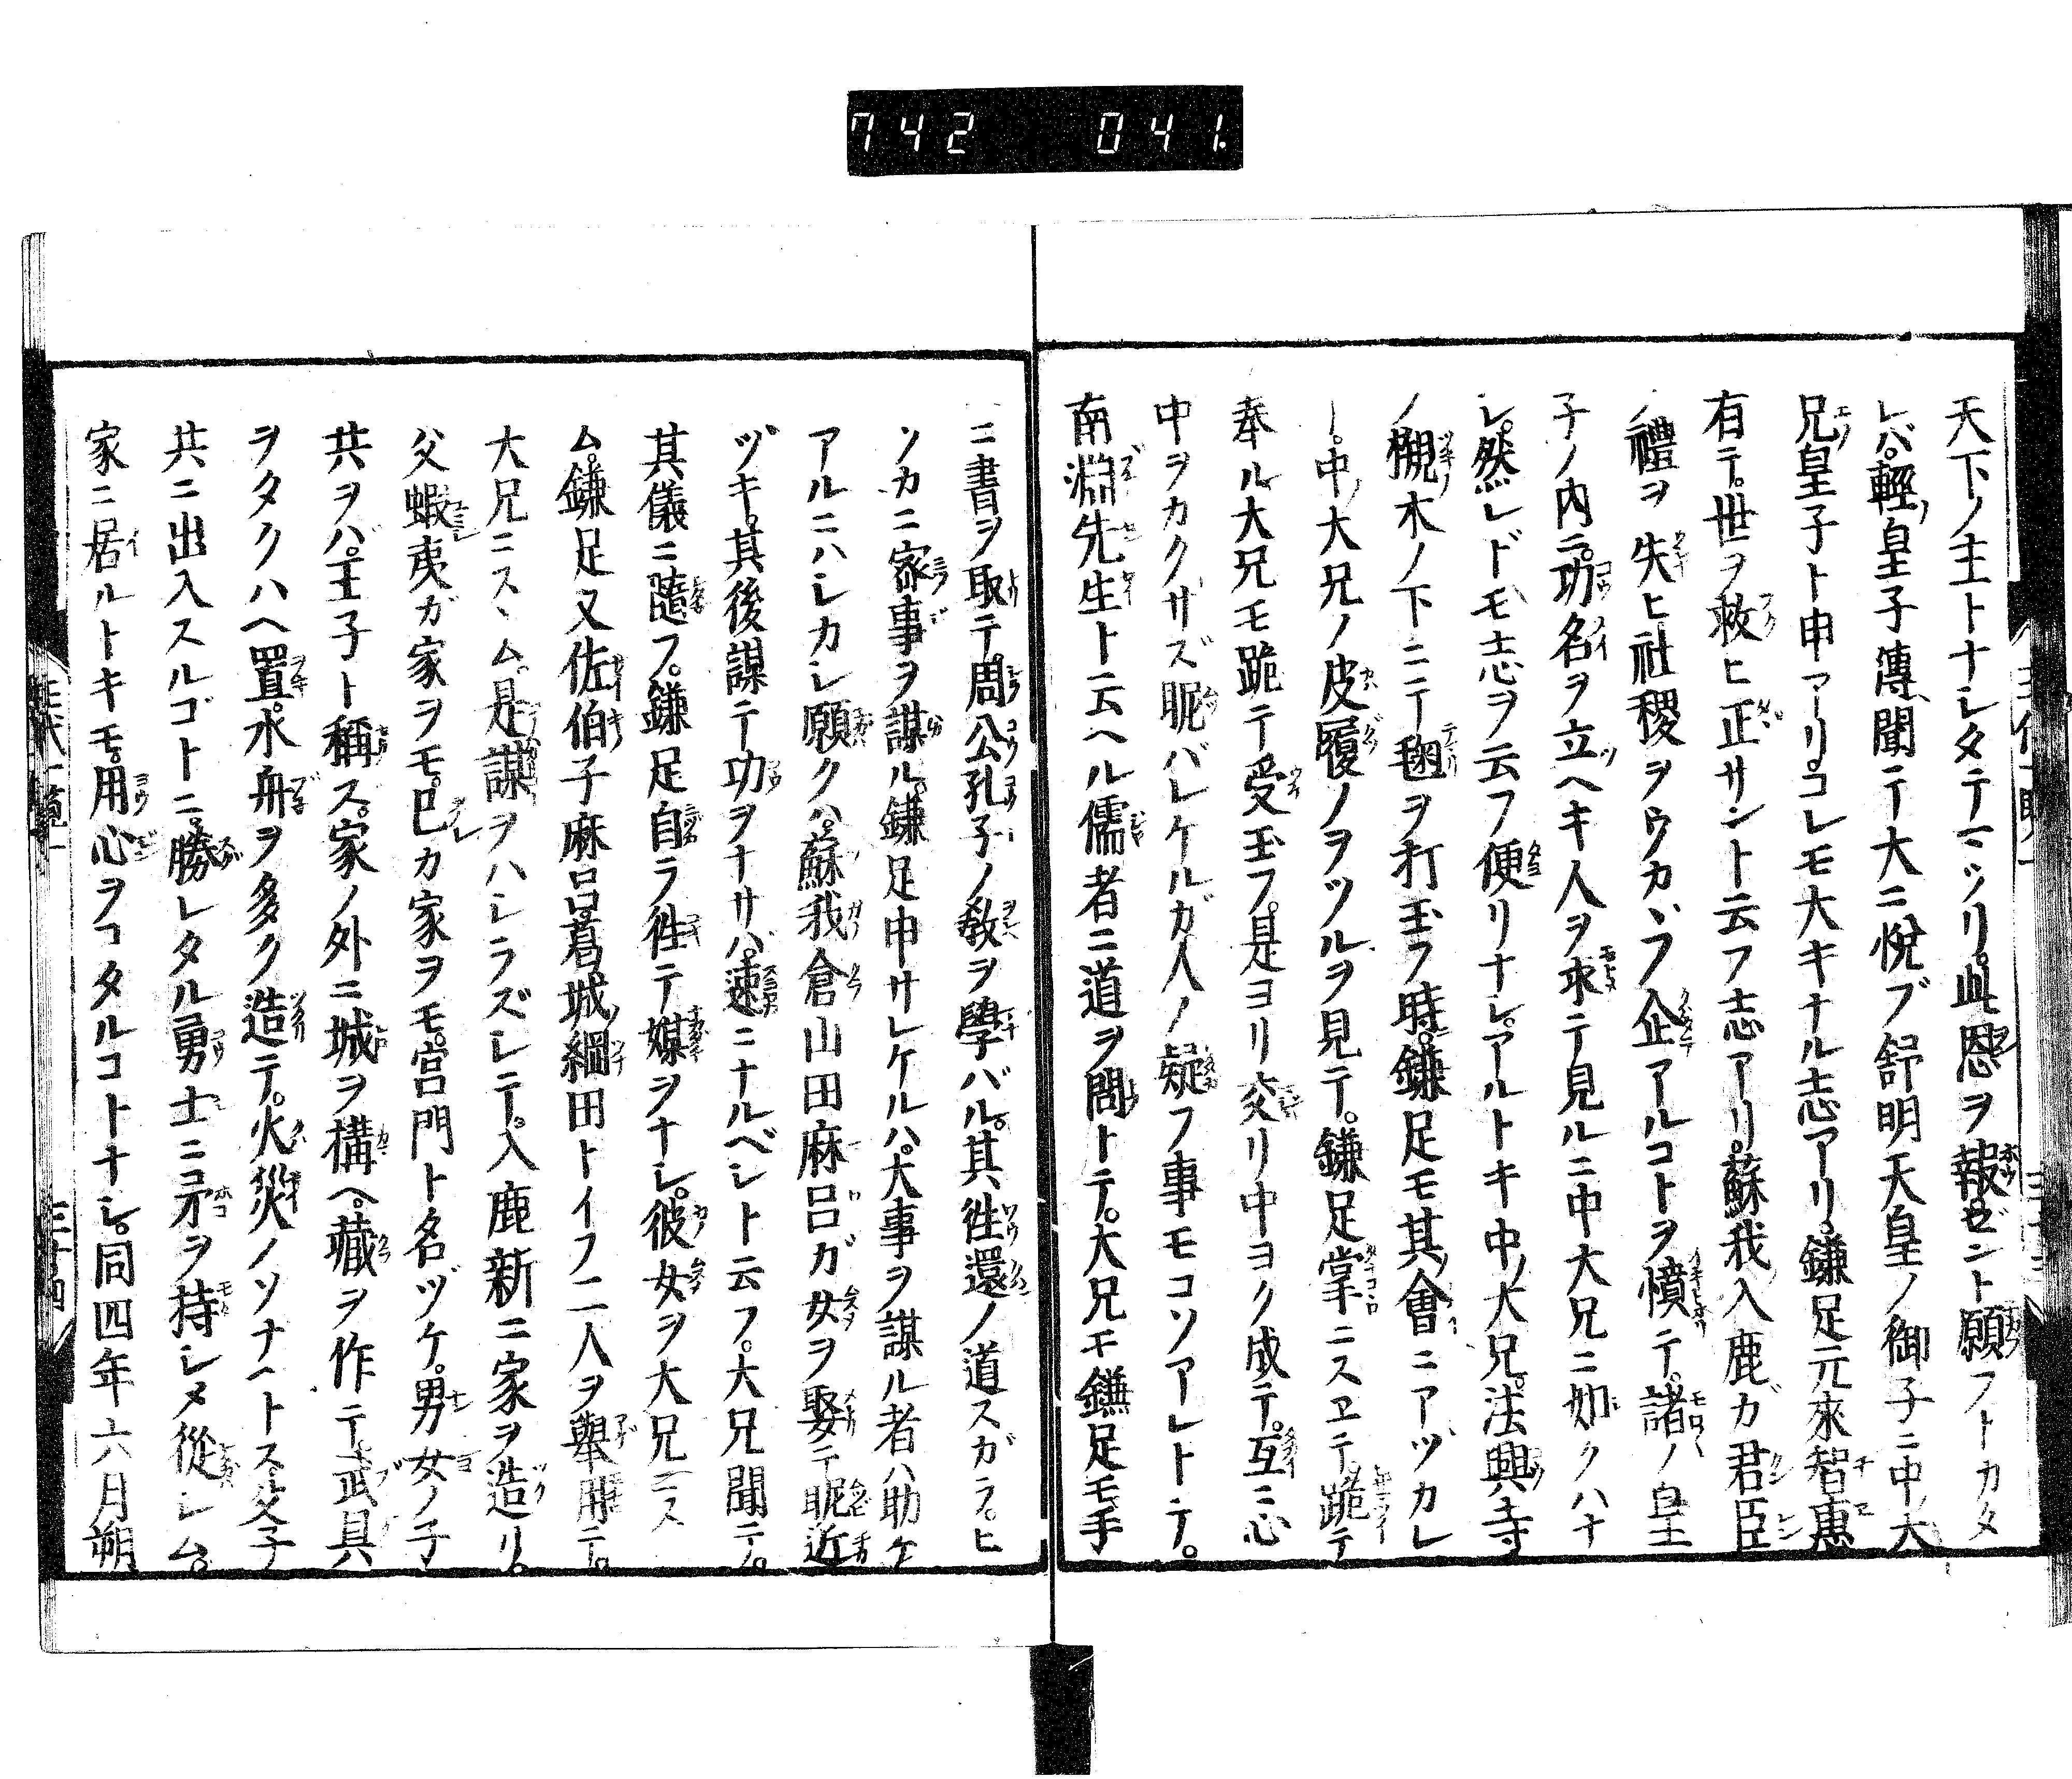 742 041.
天下ノ主トナシタテマツリ。此恩ヲ報ゼント願フトカタ
レバ。輕皇子傳聞テ大ニ悅ブ舒明天皇ノ御子ニ中大
兄皇子ト申アリ。コレモ大キナル志アリ。鎌足元來智惠
有テ。世ヲ救ヒ正サント云フ志アリ。蘇我入鹿ガ君臣
ノ禮ヲ失ヒ社稷ヲウカヽフ企アルコトヲ憤テ。諸ノ皇
子ノ内ニ。功名ヲ立ヘキ人ヲ求テ見ルニ中大兄ニ如クハナ
シ。然レドモ志ヲ云フ便リナシ。アルトキ中大兄。法興寺
ノ槻木ノ下ニテ毱ヲ打玉フ時。鎌足モ其會ニアツカレ
リ。中大兄ノ皮履ノヲツルヲ見テ。鎌足掌ニスヱテ。跪テ
奉ル大兄モ跪テ受玉フ。是ヨリ交リ中ヨク成テ。互ニ心
中ヲカクサズ昵バレケルガ人ノ疑フ事モコソアレトテ。
南淵先生ト云ヘル儒者ニ道ヲ問トテ。大兄モ鎌足モ手
ニ書ヲ取テ。周公孔子ノ敎ヲ學バル。其徃還ノ道スガラ。ヒ
ソカニ家事ヲ謀ル。鎌足申サレケルハ。大事ヲ謀ル者ハ助ケ
アルニハシカシ願クハ。蘇我倉山田麻呂ガ女ヲ娶テ昵近
ヅキ。其後謀テ功ヲナサバ。速ニナルベシト云フ。大兄聞テ。
其儀ニ隨フ。鎌足自ラ徃テ媒ヲナシ。彼女ヲ大兄ニス
ム。鎌足又佐伯子麻呂葛城綱田トイフ二人ヲ擧用テ。
大兄ニスヽム。是謀ヲハシラズシテ。入鹿新ニ家ヲ造リ。
父蝦夷ガ家ヲモ。巳カ家ヲモ。宮門ト名ヅケ。男女ノ子
共ヲバ。王子ト稱ス。家ノ外ニ城ヲ構ヘ。藏ヲ作テ武具
ヲタクハヘ置。水舟ヲ多ク造テ。火災ノソナヘトス。父子
共ニ出入スルゴトニ。勝レタル勇士ニ矛ヲ持シメ從シム。
家ニ居ルトキモ。用心ヲコタルコトナシ。同四年六月朔